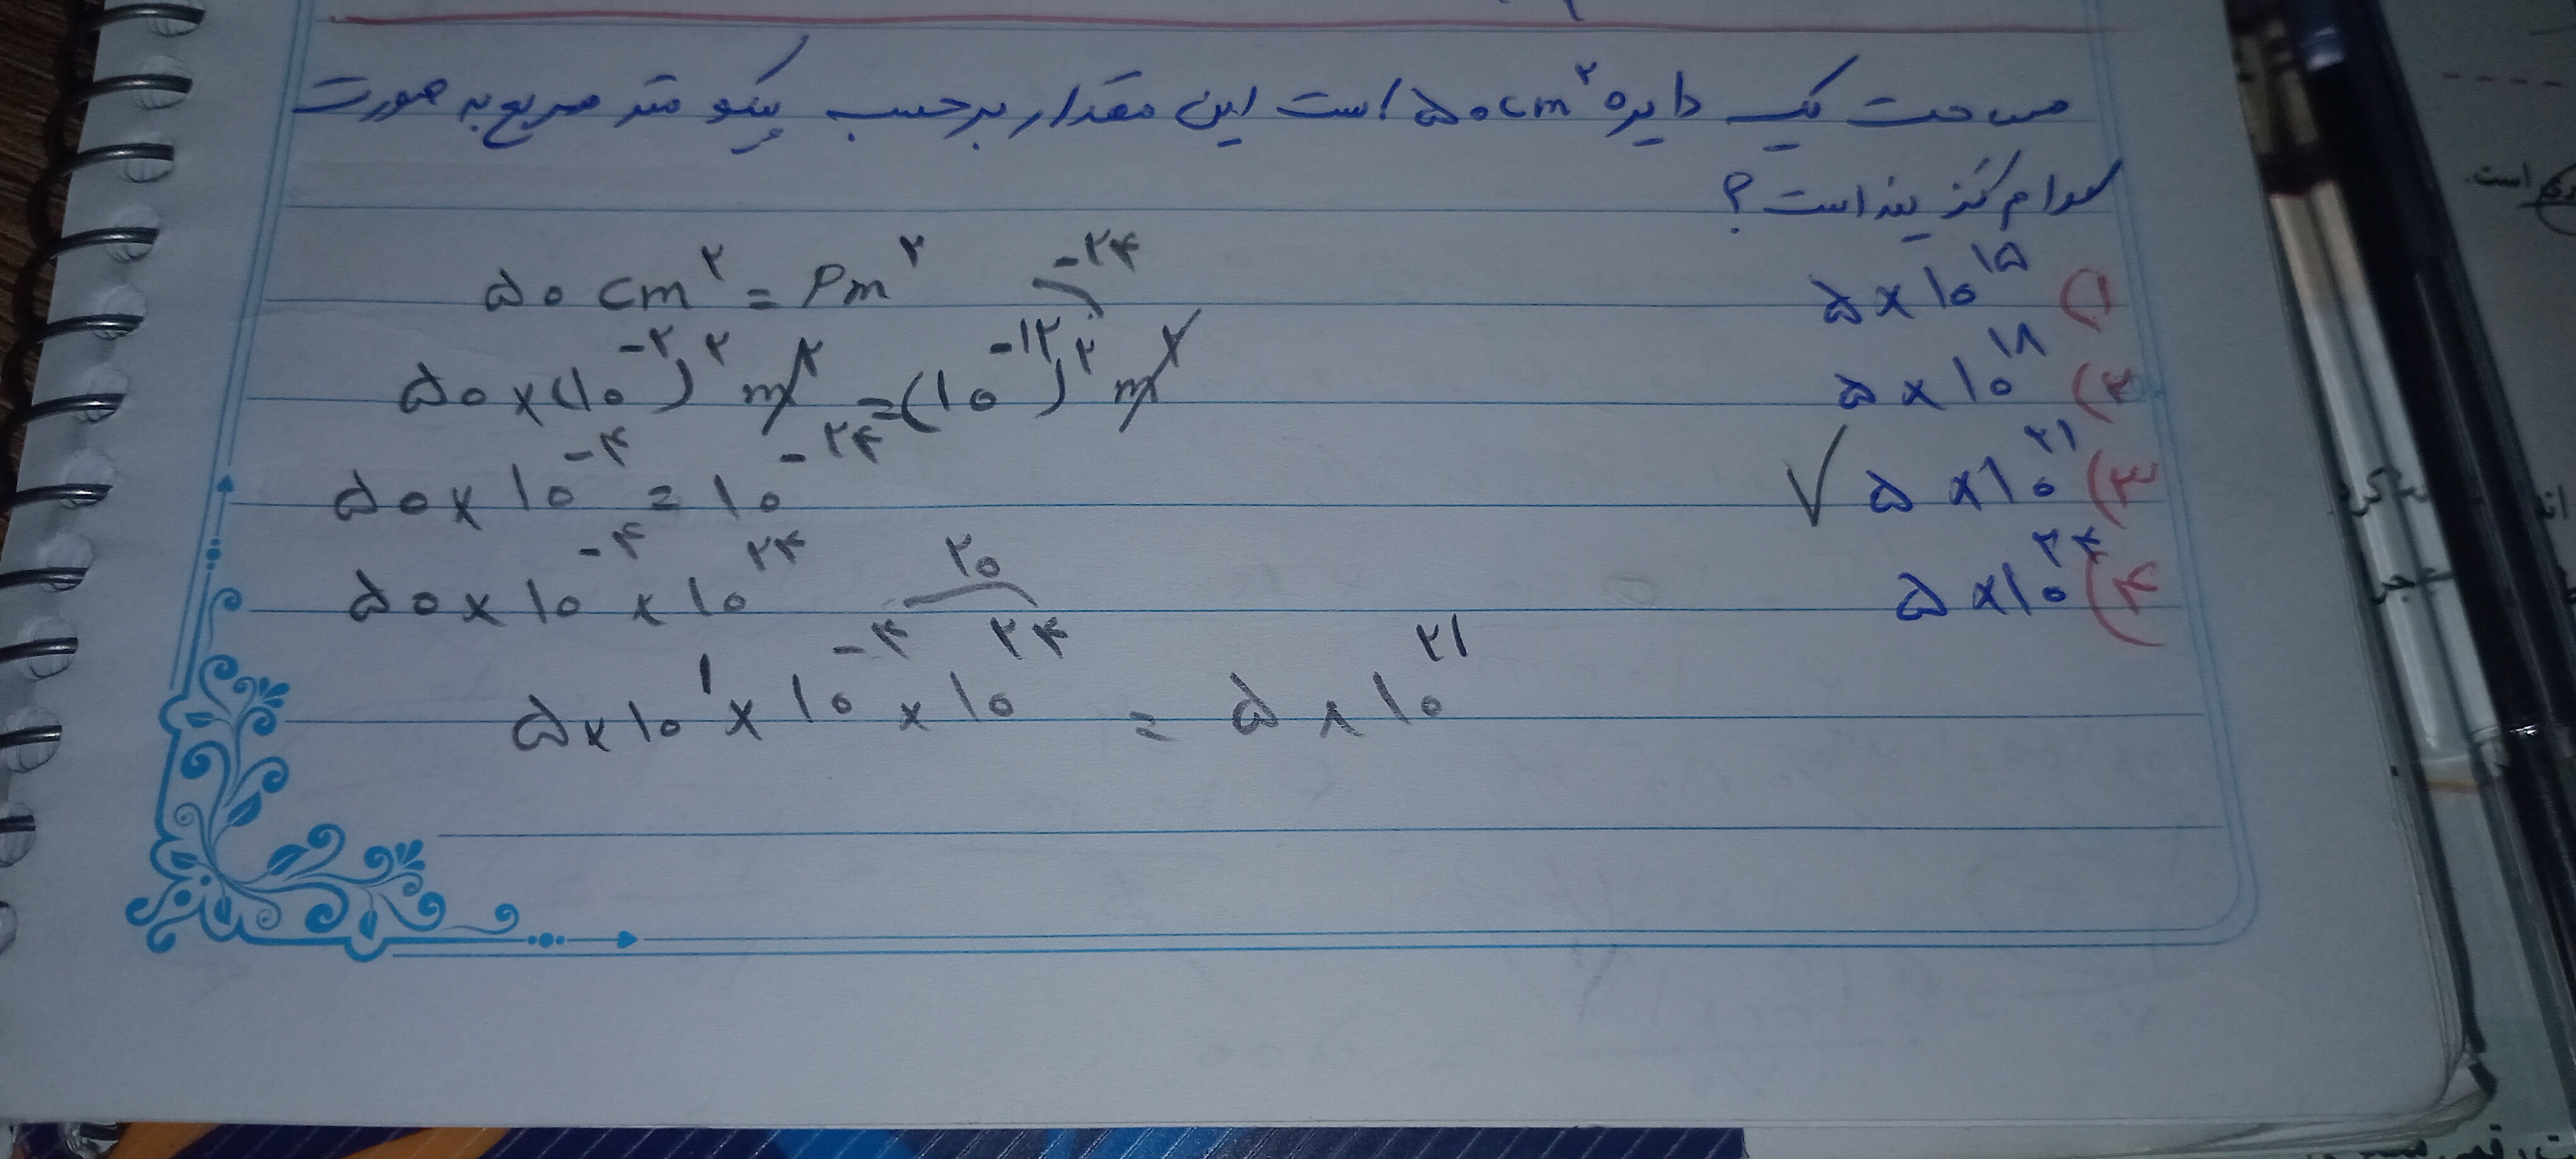 مساحت یک دایره ۵۰cm² است این مقدار برحسب پیکو متر مربع به صورت
کدام گزینه است؟
۱) ۵×۱۰^۱۵
۲) ۵×۱۰^۱۸
۳) ۵×۱۰^۲۱ ✓
۴) ۵×۱۰^۲۴
۵۰ cm^۲ = Pm^۲
-۲۴
۵۰×(۱۰^-۲)^۲ m^۲ = (۱۰^-۱۲)^۲ m^۲
۵۰×۱۰^-۴ = ۱۰^-۲۴
۵۰×۱۰^-۴×۱۰^۲۴
۲۰
۵×۱۰^۱×۱۰^-۴×۱۰^۲۴ = ۵×۱۰^۲۱
است.